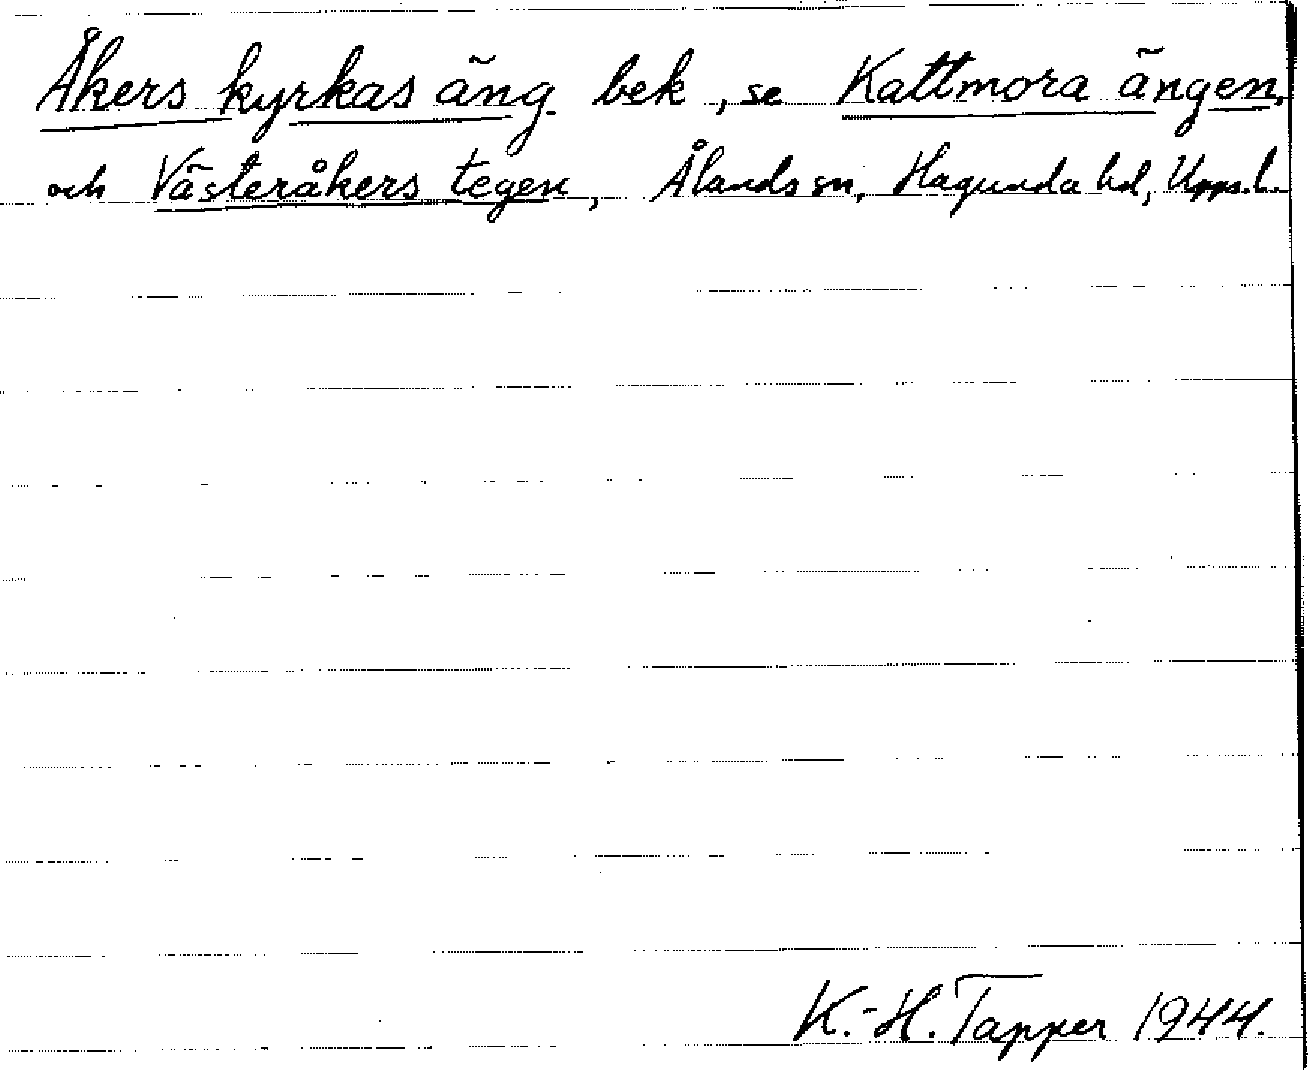 Åkers kyrkas äng bek, se Kattmora ängen,
och Västeråkers tegen, Ålands sn, Hagunda hd, Upps.l.
K.-H. Tapper 1944.